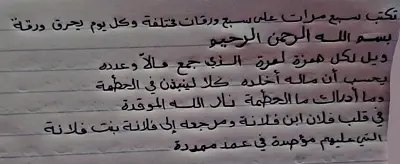 تكتب سبع مرات على سبع ورقات مختلفة وكل يوم يحرق ورقة
بسم الله الرحمن الرحيم
ويل لكل همزة لمزة الذي جمع مالاً وعدده
يحسب أن ماله أخلده كلا لينبذن في الحطمة
وما أدراك ما الحطمة نار الله الموقدة
في قلب فلان ابن فلانة ومرجعه إلى فلانة بنت فلانة
التي عليهم مؤصدة في عمد ممددة